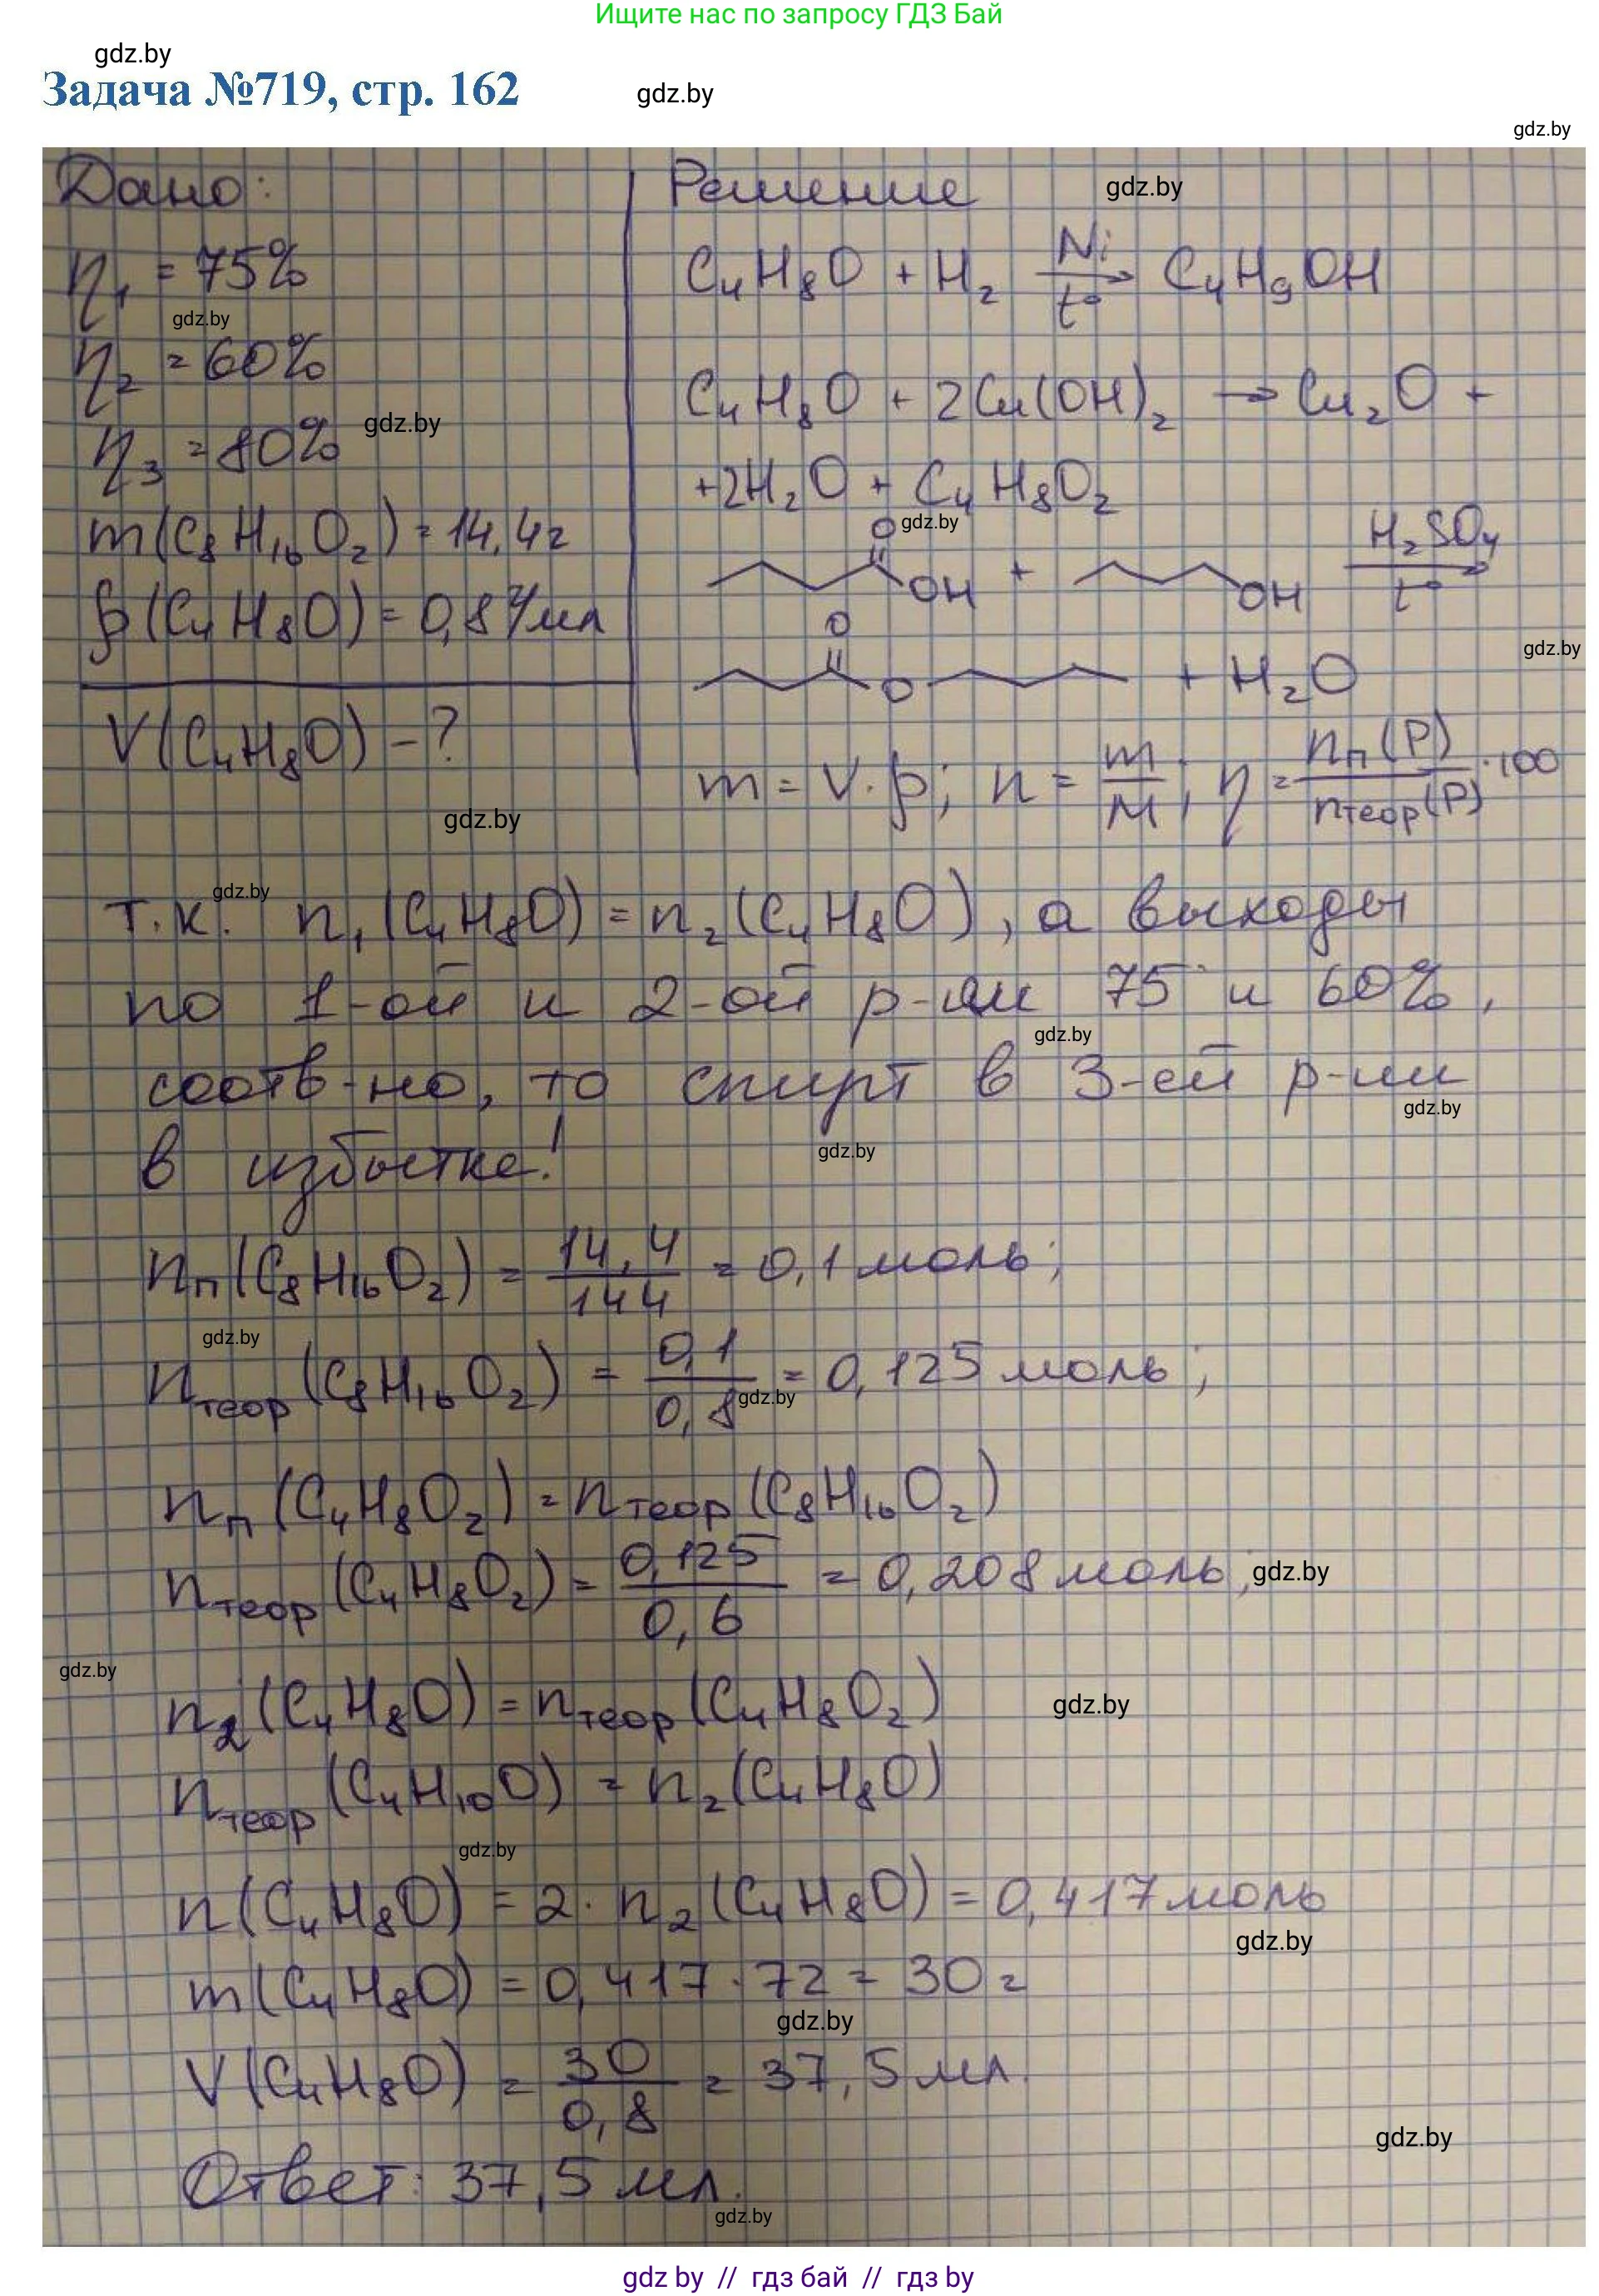 Ищите нас по запросу ГДЗ Бай
gdz.by
Задача №719, стр. 162
gdz.by
gdz.by
Дано:
η₁ = 75%
gdz.by
η₂ = 60%
η₃ = 80%
gdz.by
m(C₈H₁₆O₂) = 14,4г
ρ(C₄H₈O) = 0,8 г/мл
V(C₄H₈O) – ?
gdz.by
Решение
gdz.by
C₄H₈O + H₂ Ni → t° C₄H₉OH
C₄H₈O + 2Cu(OH)₂ → Cu₂O +
+2H₂O + C₄H₈O₂
gdz.by
O
OH + OH H₂SO₄ → t°
O
gdz.by
O + H₂O
m = V·ρ; n = m/M; η = nп(P)/nтеор(P) ·100
gdz.by
т.к. n₁(C₄H₈O) = n₂(C₄H₈O), а выходы
по 1-ой и 2-ой р-ии 75 и 60%,
gdz.by
соотв-но, то спирт в 3-ей р-ии
gdz.by
в избытке!
gdz.by
nп(C₈H₁₆O₂) = 14,4/144 = 0,1 моль;
gdz.by
nтеор(C₈H₁₆O₂) = 0,1/0,8 = 0,125 моль;
gdz.by
nп(C₄H₈O₂) = nтеор(C₈H₁₆O₂)
nтеор(C₄H₈O₂) = 0,125/0,6 = 0,208 моль;
gdz.by
gdz.by
n₂(C₄H₈O) = nтеор(C₄H₈O₂)
gdz.by
nтеор(C₄H₁₀O) = n₂(C₄H₈O)
gdz.by
n(C₄H₈O) = 2·n₂(C₄H₈O) = 0,417 моль
gdz.by
m(C₄H₈O) = 0,417·72 = 30 г
gdz.by
V(C₄H₈O) = 30/0,8 = 37,5 мл.
gdz.by
Ответ: 37,5 мл.
gdz.by
gdz by // гдз бай // гдз by